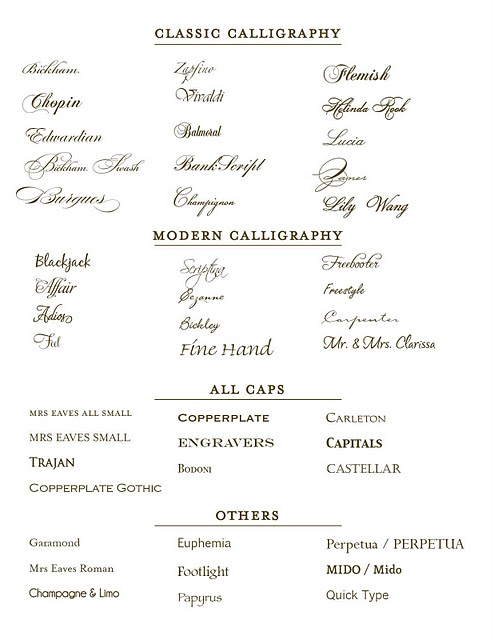 CLASSIC CALLIGRAPHY
Bickham
Zapfino
Flemish
Chopin
Vivaldi
Helinda Rook
Edwardian
Balmoral
Lucia
Bickham Swash
BankScript
James
Burgues
Champignon
Lily Wang
MODERN CALLIGRAPHY
Blackjack
Scriptina
Freebooter
Affair
Cezanne
Freestyle
Adios
Bickley
Carpenter
Fling
Fine Hand
Mr. & Mrs. Clarissa
ALL CAPS
MRS EAVES ALL SMALL
COPPERPLATE
CARLETON
MRS EAVES SMALL
ENGRAVERS
CAPITALS
TRAJAN
BODONI
CASTELLAR
COPPERPLATE GOTHIC
OTHERS
Garamond
Euphemia
Perpetua / PERPETUA
Mrs Eaves Roman
Footlight
MIDO / Mido
Champagne & Limo
Papyrus
Quick Type